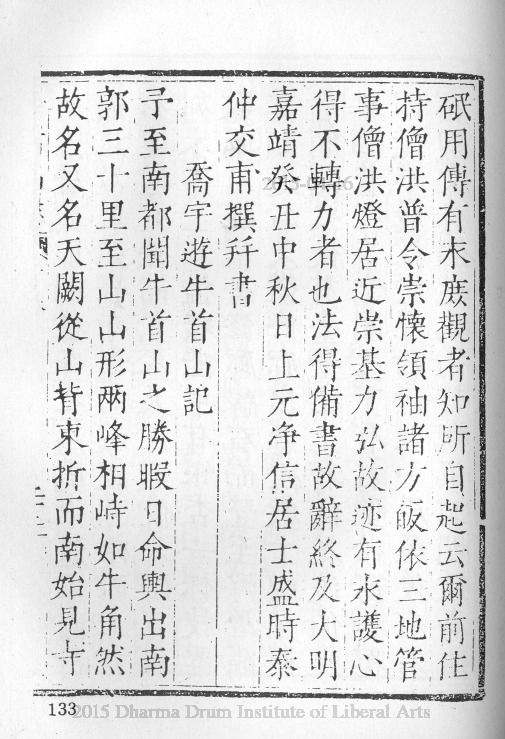 珉用傳有末庻觀者知所自起云爾前住
持僧洪普令崇懷領袖諸方皈依三地管
事僧洪燈居近崇基力弘故迹有永護心
得不轉力者也法得備書故辭終及大明
嘉靖癸丑中秋日上元净信居士盛時泰
仲交甫撰并書
喬宇遊牛首山記
予至南都聞牛首山之勝暇日命輿出南
郭三十里至山山形兩峰相峙如牛角然
故名又名天闕從山背東折而南始見寺
133
2015 Dharma Drum Institute of Liberal Arts